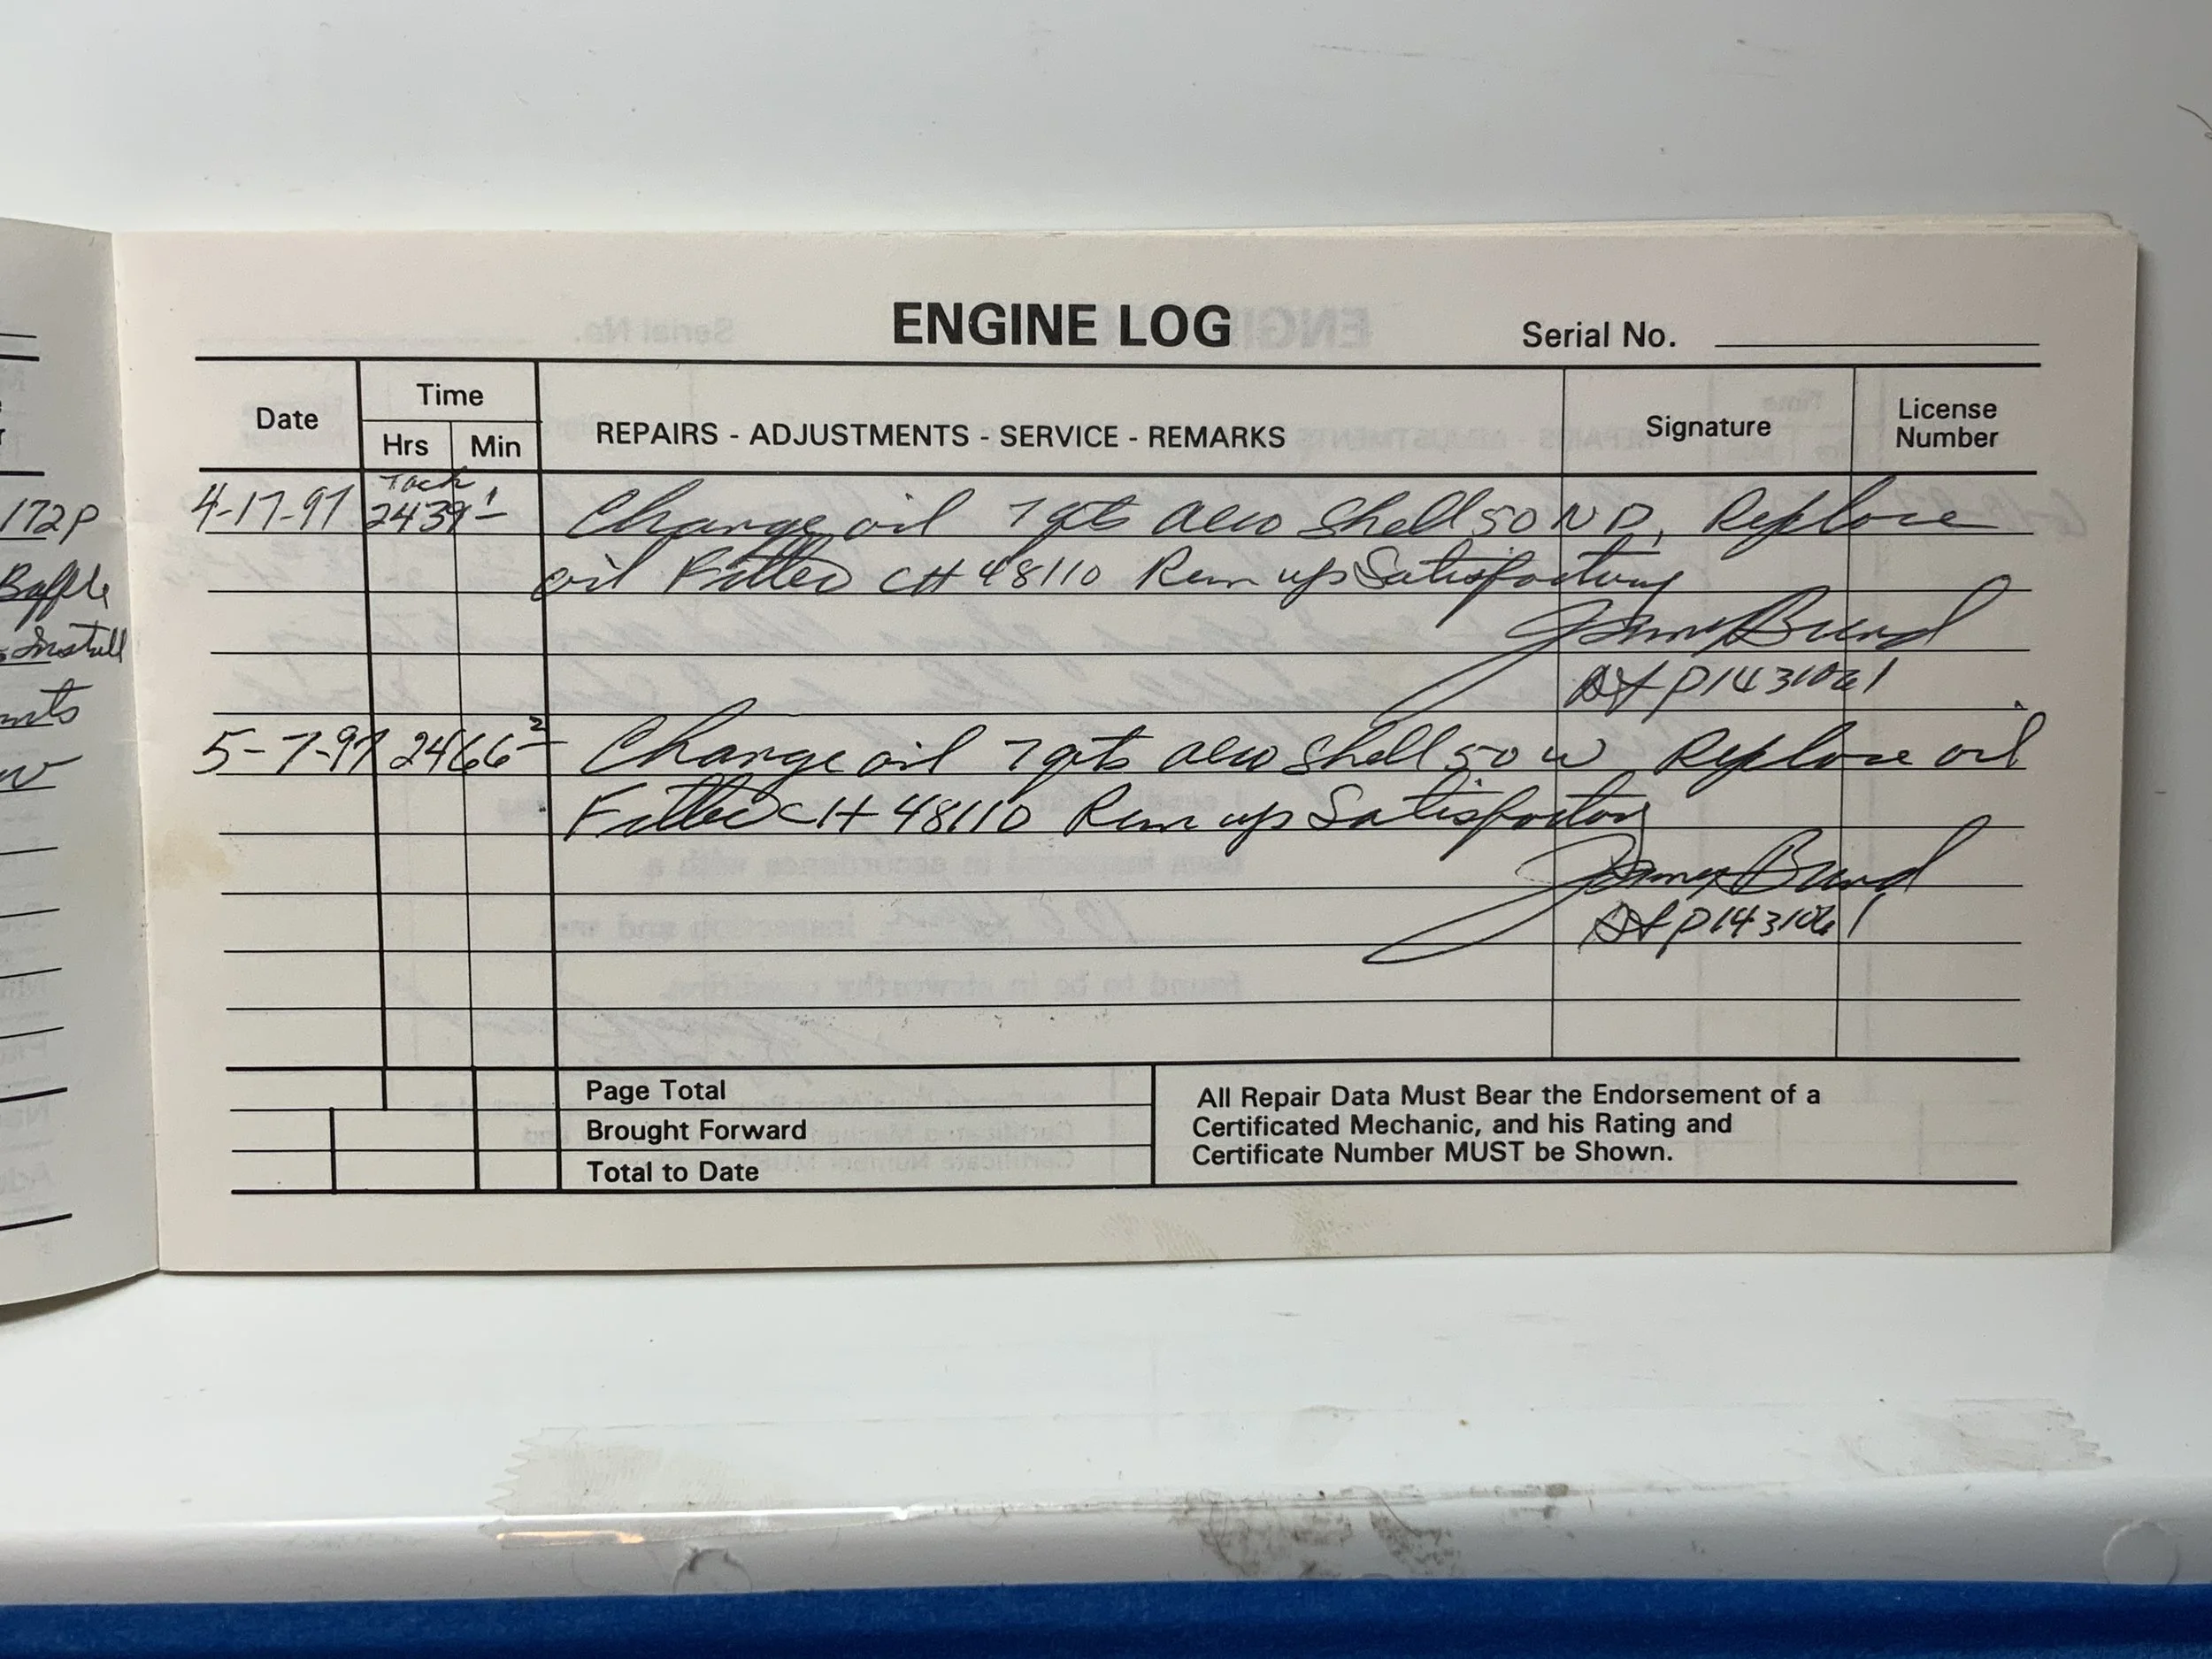 172P
Baffle
Install
ENGINE LOG
Serial No.
Date
Time
Hrs
Min
REPAIRS - ADJUSTMENTS - SERVICE - REMARKS
Signature
License
Number
4-17-97 Tach 2439 1 Change oil 7 qts aero Shell 50 ND, Replace
oil Filter CH 48110 Run up Satisfactory
James
A&P 1431061
5-7-97 2466 2 Change oil 7 qts aero Shell 50 W Replace oil
Filter CH 48110 Run up Satisfactory
James
A&P 1431061
Page Total
Brought Forward
Total to Date
All Repair Data Must Bear the Endorsement of a
Certificated Mechanic, and his Rating and
Certificate Number MUST be Shown.